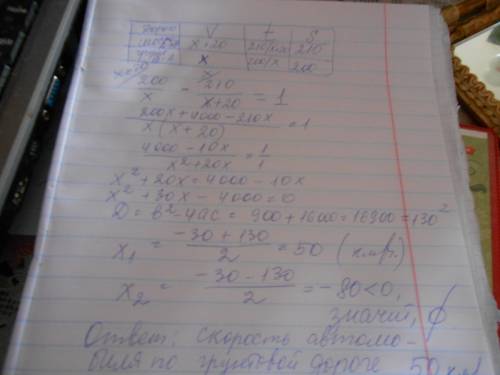 V t S
x+20 210/x+20 210
x 200/x 200
x+20 x
200/x - 210/x+20 = 1
200x+4000-210x/x(x+20) = 1
4000-10x/x²+20x = 1/1
x²+20x=4000-10x
x²+30x-4000=0
D = b²-4ac = 900+16000=16900=130²
x₁ = -30+130/2 = 50 (км/ч).
x₂ = -30-130/2 = -80<0,
значит, ∅
Ответ: скорость автомо-
биля по грунтовой дороге 50 км